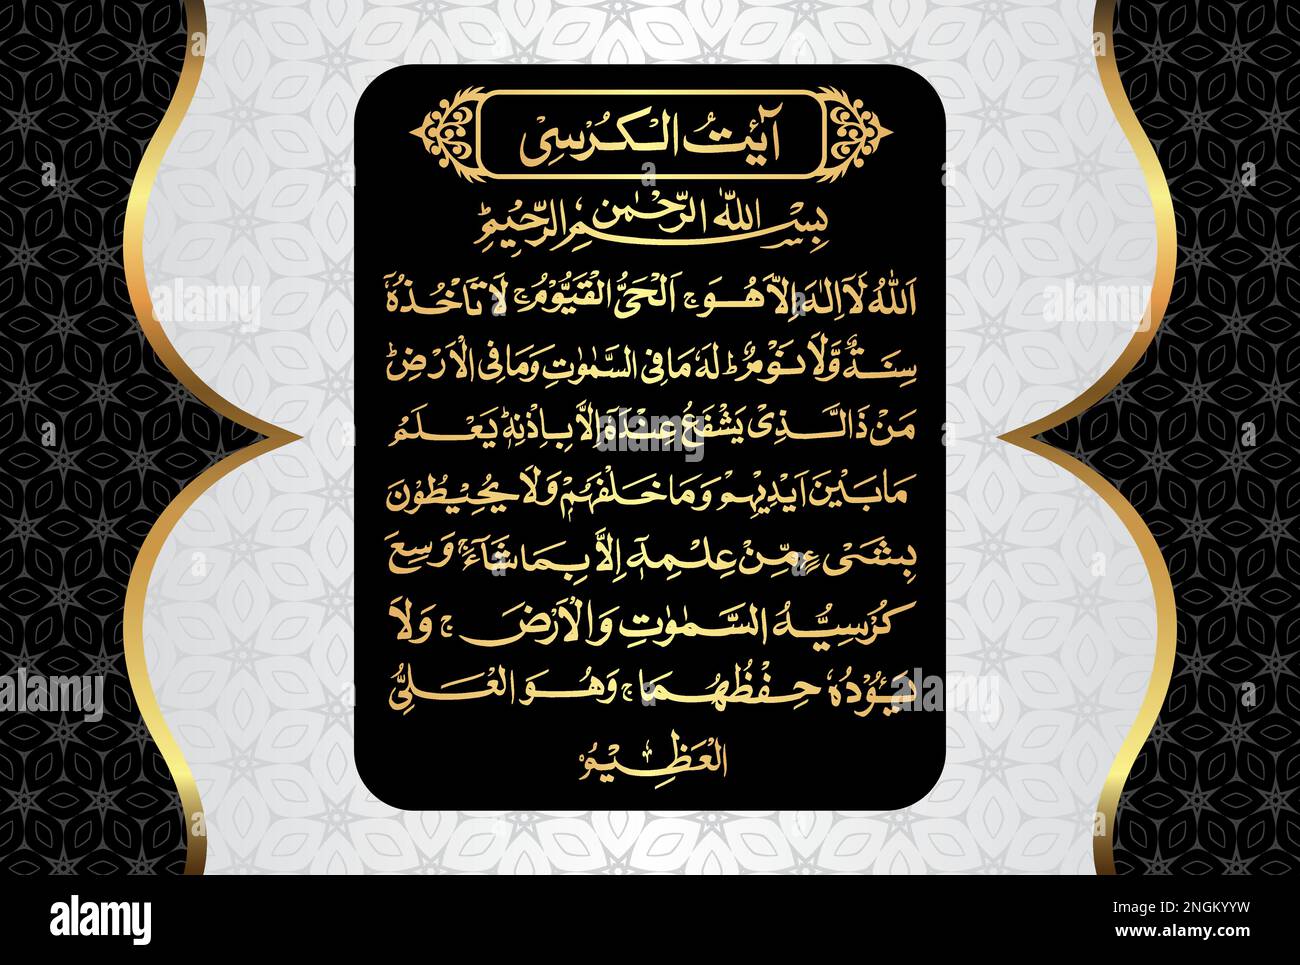 آيَتُ الْكُرْسِىْ
بِسْمِ اللهِ الرَّحْمٰنِ الرَّحِيْمِ
اَللهُ لَآ اِلٰهَ اِلَّا هُوَ ۚ اَلْحَىُّ الْقَيُّوْمُ ۚ لَا تَاْخُذُهٗ
سِنَةٌ وَّلَا نَوْمٌ ؕ لَهٗ مَا فِى السَّمٰوٰتِ وَمَا فِى الْاَرْضِ ؕ
مَنْ ذَا الَّذِىْ يَشْفَعُ عِنْدَهٗٓ اِلَّا بِاِذْنِهٖ ؕ يَعْلَمُ
مَا بَيْنَ اَيْدِيْهِمْ وَمَا خَلْفَهُمْ ۚ وَلَا يُحِيْطُوْنَ
بِشَىْءٍ مِّنْ عِلْمِهٖٓ اِلَّا بِمَا شَآءَ ۚ وَسِعَ
كُرْسِيُّهُ السَّمٰوٰتِ وَالْاَرْضَ ۚ وَلَا
يَئُوْدُهٗ حِفْظُهُمَا ۚ وَهُوَ الْعَلِىُّ
الْعَظِيْمُ
alamy
alamy
Image ID: 2NGKYYW
www.alamy.com